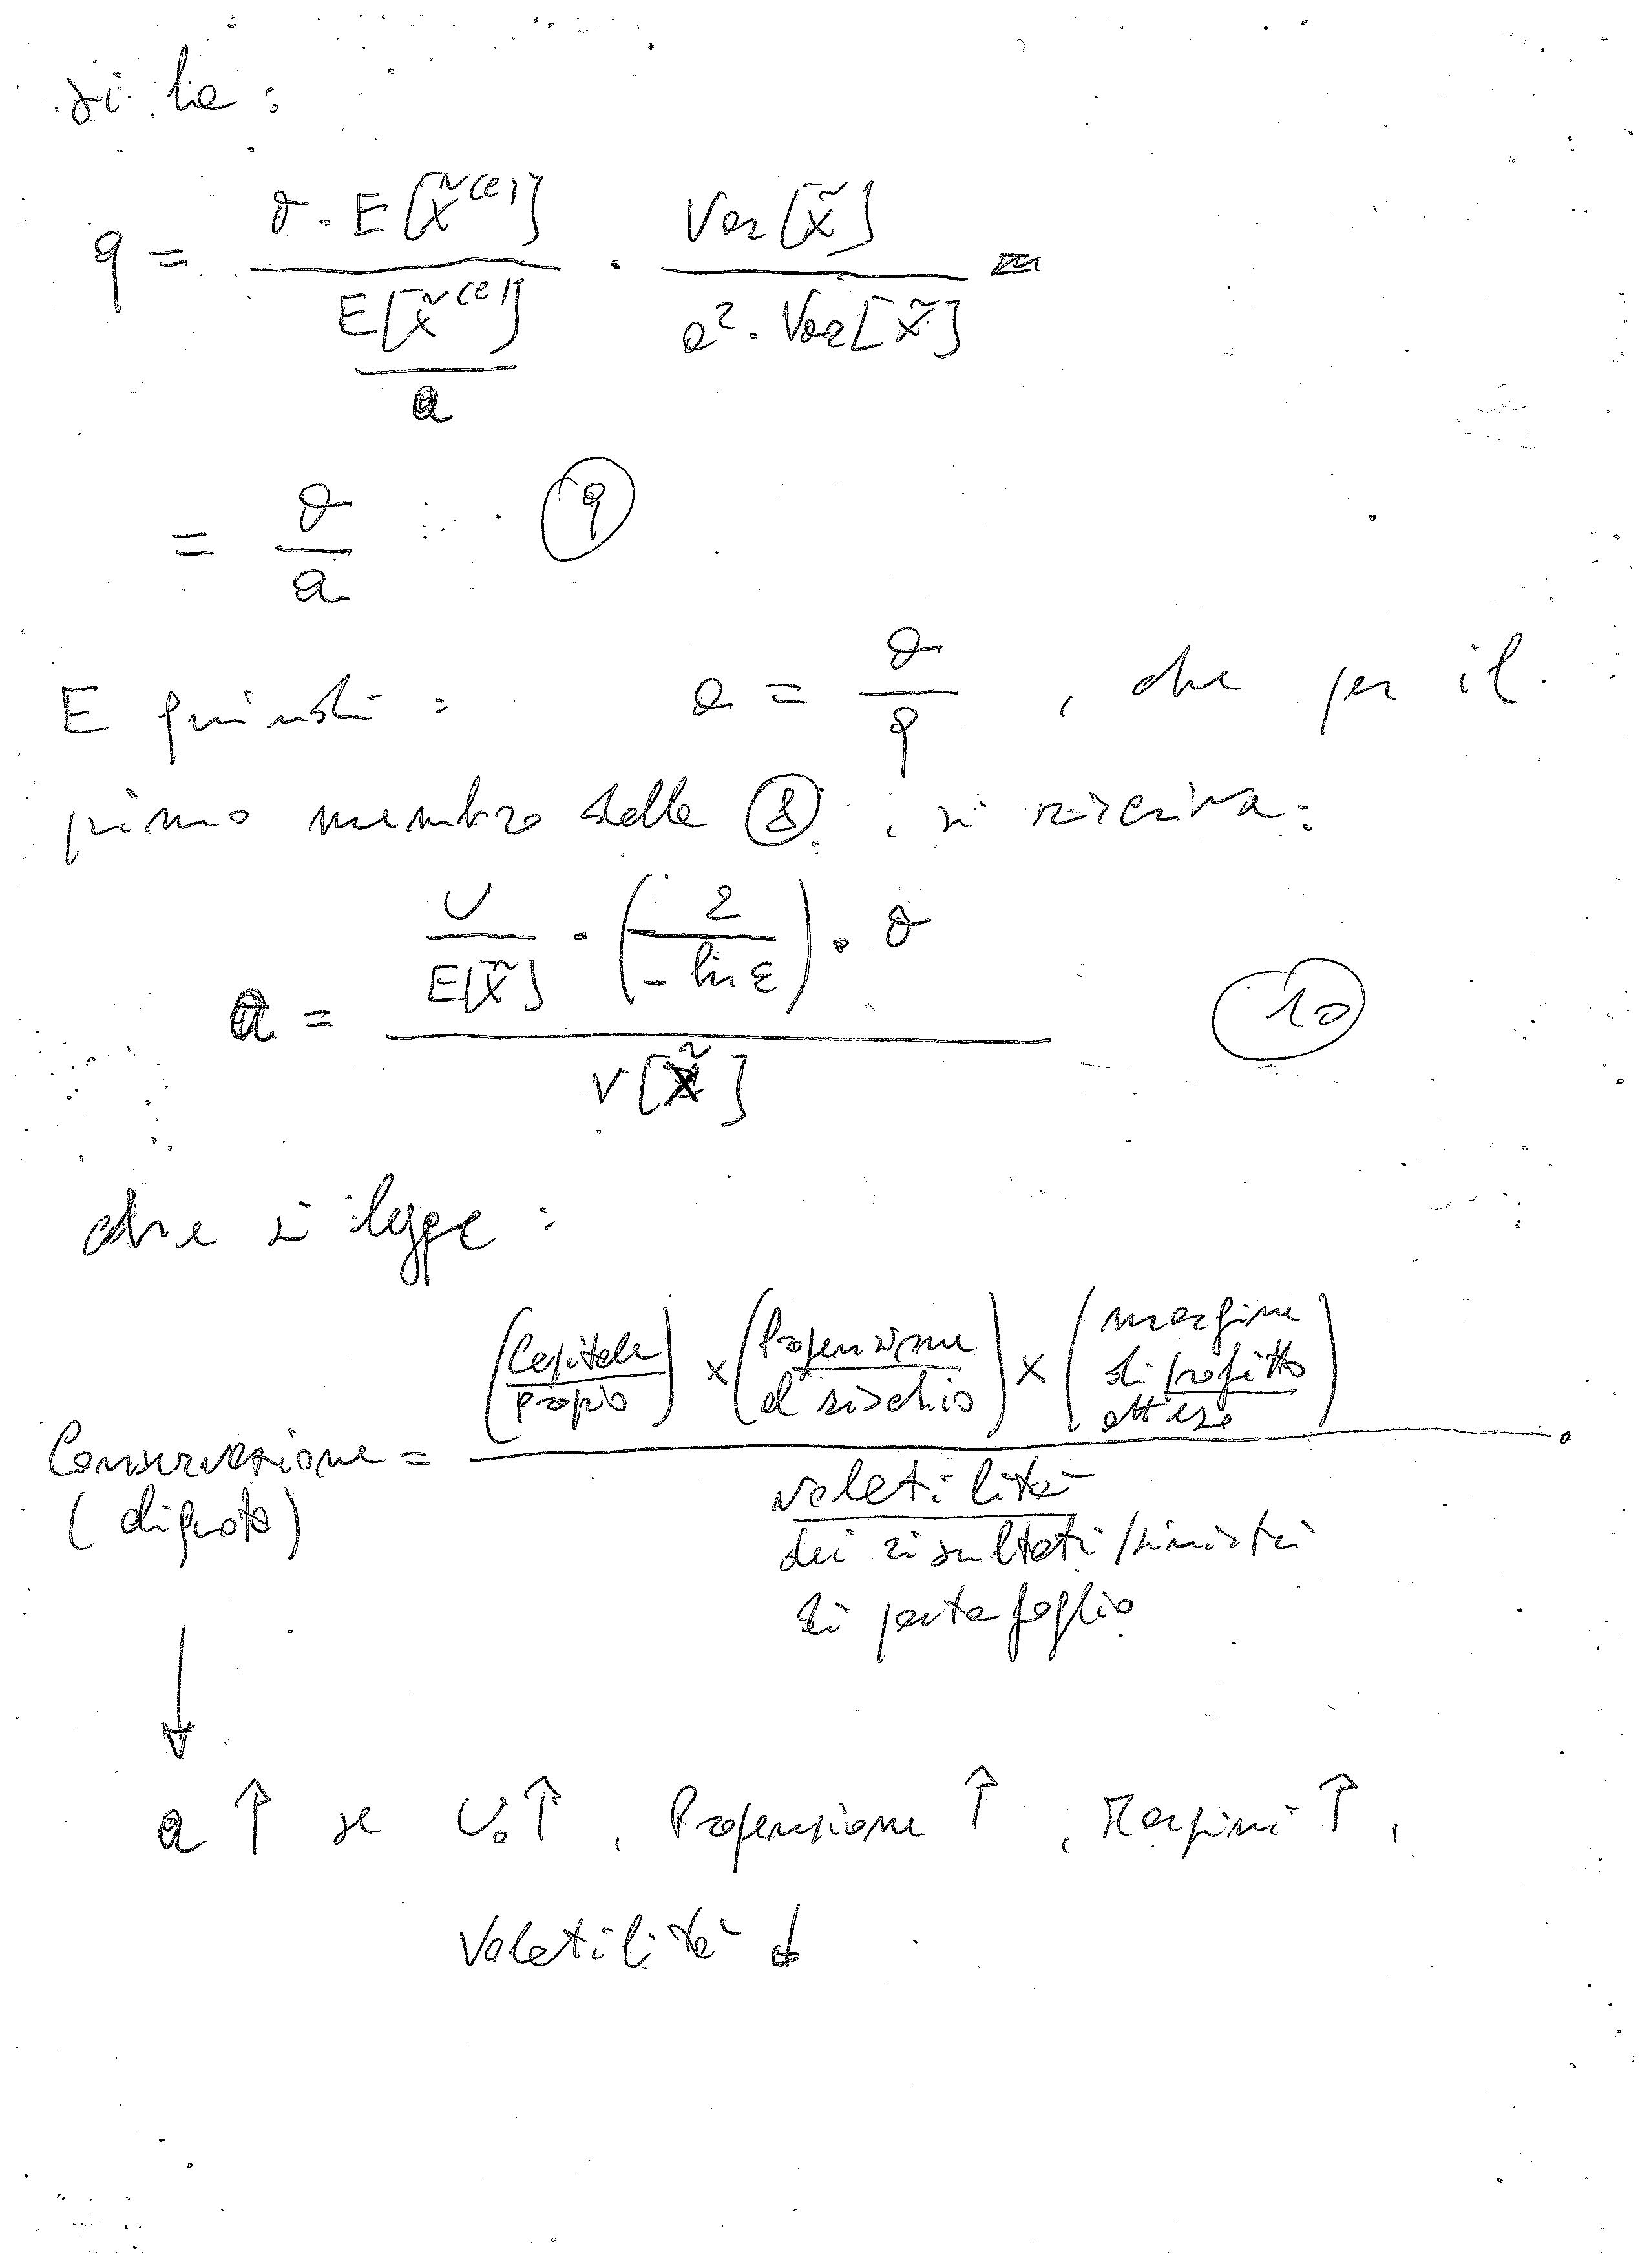 si ha:
q = ϑ · E[X̃^(a)] / (E[X̃^(a)] / a) · Var[X̃] / (a² · Var[X̃]) =
= ϑ / a (9)
E quindi: a = ϑ / q , che per il
primo membro della (8), si riscriva:
a = (U / E[X̃] · (2 / -ln ε) · ϑ) / V[X̃] (10)
che si legge:
Conservazione (di quota) = (Capitale proprio) × (Propensione al rischio) × (margine di profitto atteso) / volatilità dei risultati/sinistri di portafoglio
↓
a ↑ se U₀ ↑, Propensione ↑, Margini ↑,
Volatilità ↓